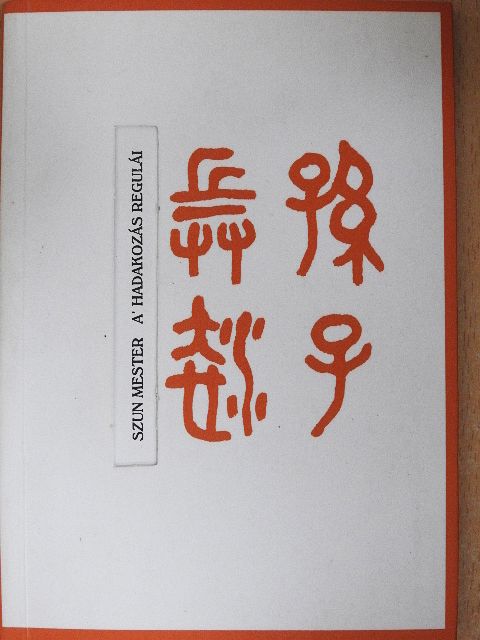 孫子
兵法
SZUN MESTER A' HADAKOZÁS REGULÁI